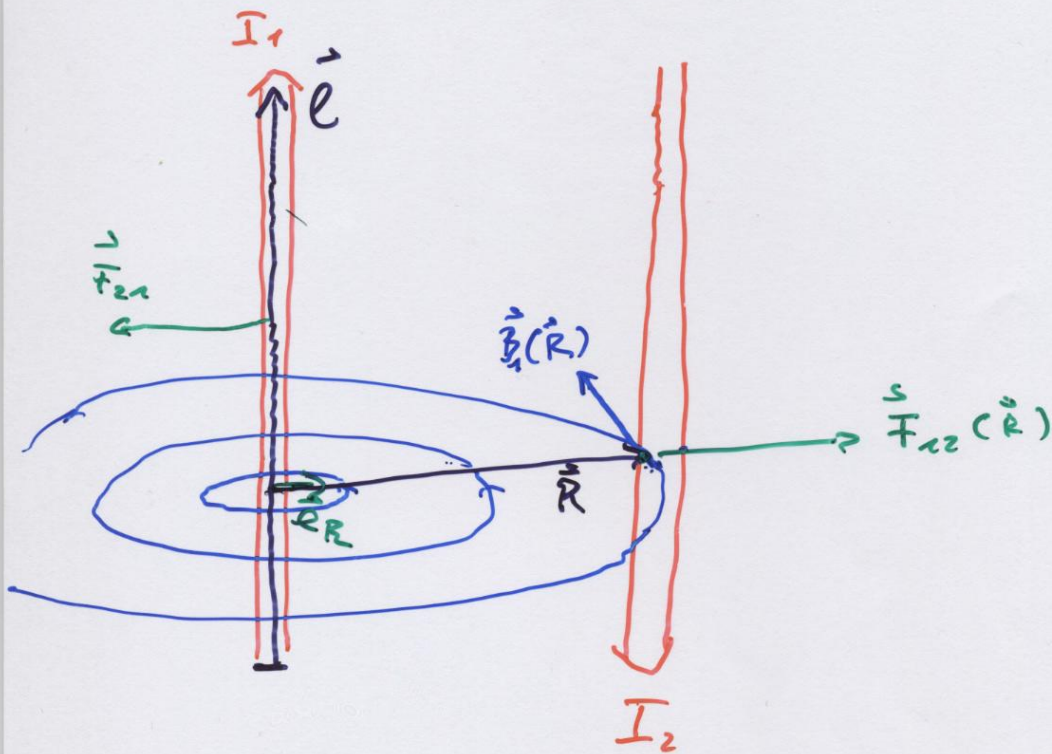 I₁
ℓ⃗
F⃗₂₁
B⃗₁(R⃗)
F⃗₁₂(R⃗)
R⃗
e⃗_R
I₂